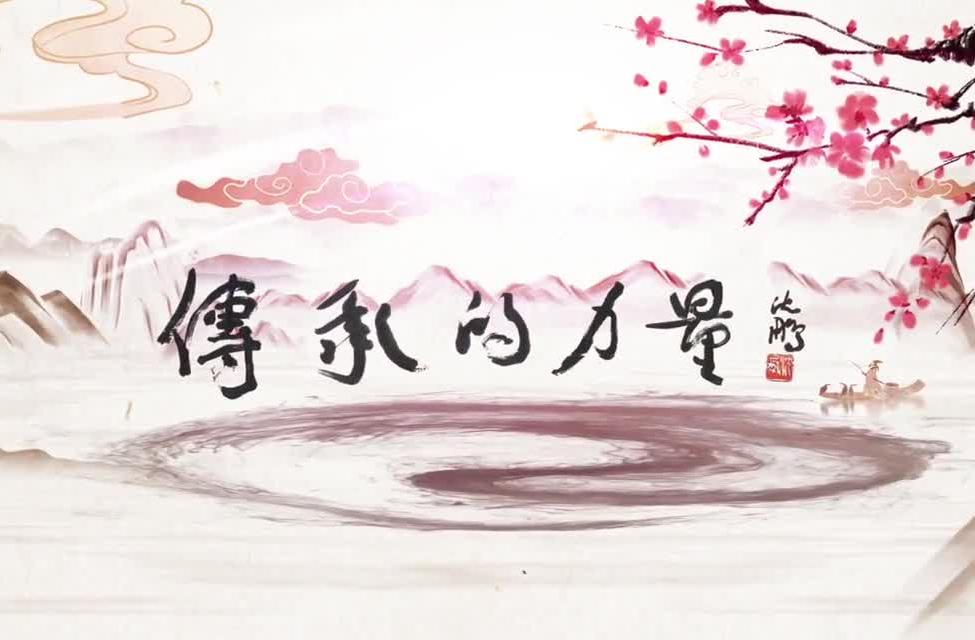 傳承的力量
沈鹏